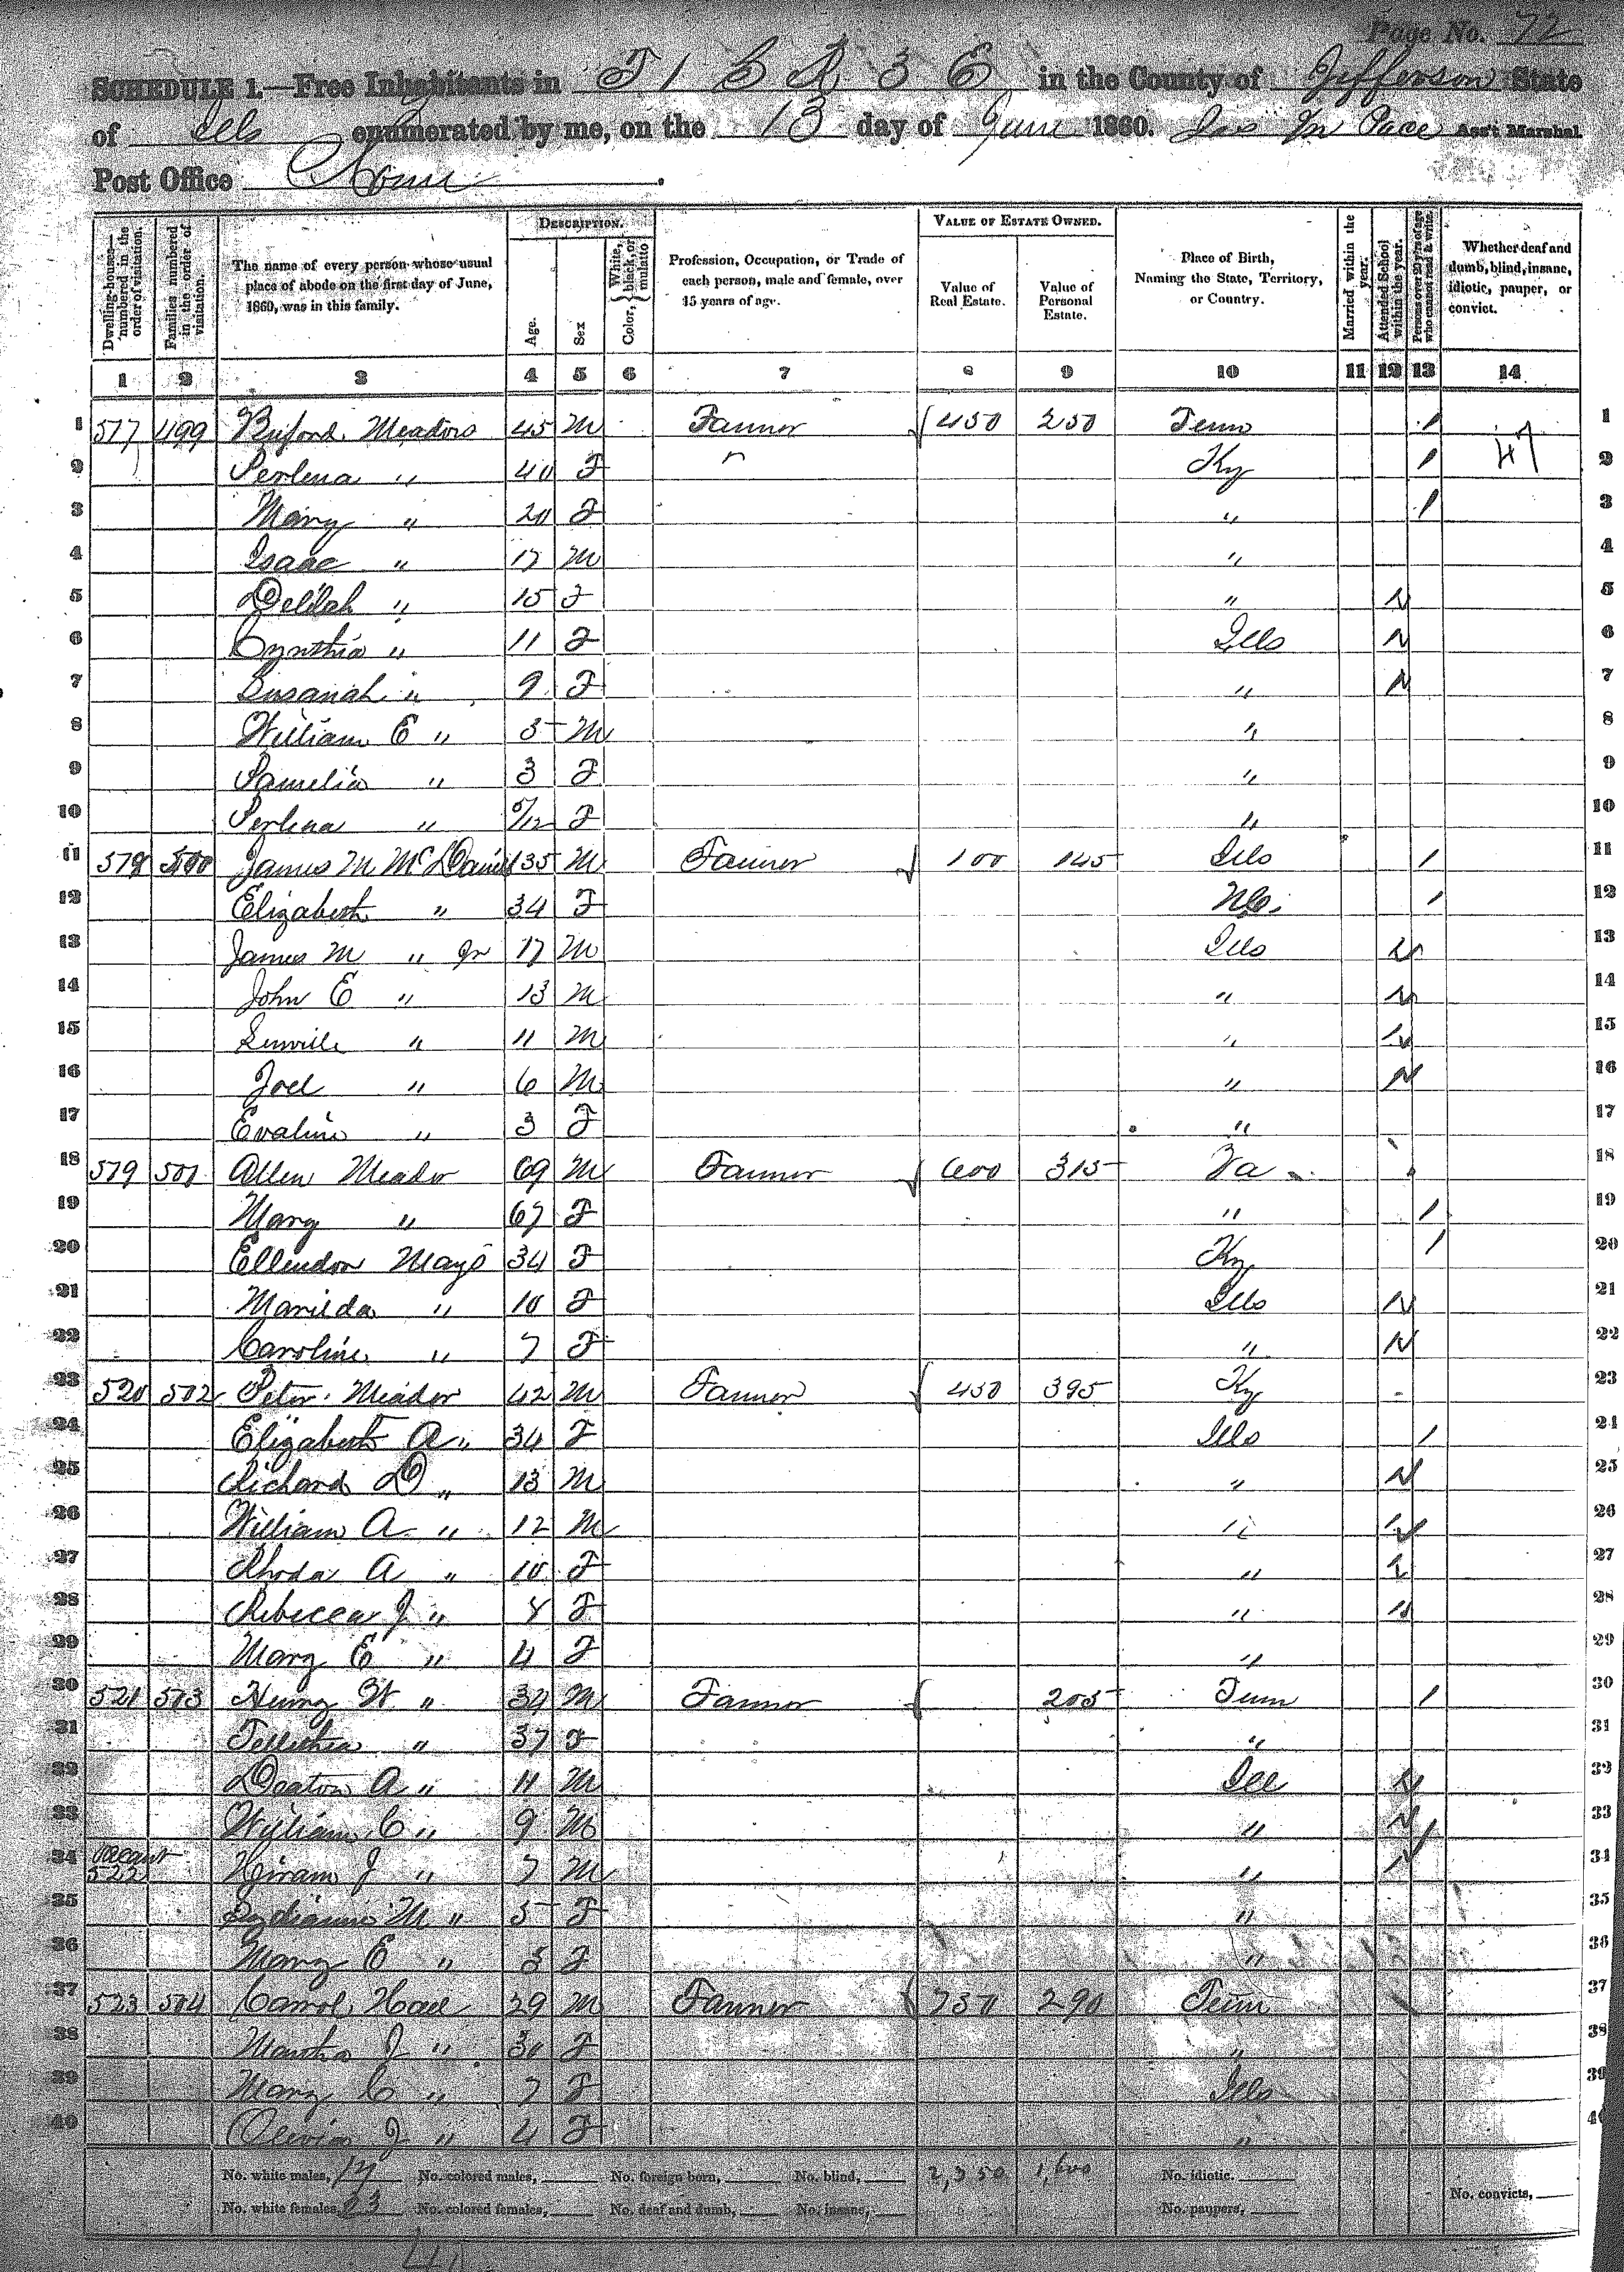 Page No. 72
SCHEDULE 1.—Free Inhabitants in T 1 S R 3 E in the County of Jefferson State
of Ills enumerated by me, on the 13 day of June 1860. Jas M Pace Ass't Marshal.
Post Office Rome.
Dwelling-houses—numbered in the order of visitation.
Families numbered in the order of visitation.
The name of every person whose usual place of abode on the first day of June, 1860, was in this family.
DESCRIPTION.
Age.
Sex
Color, { White, black, or mulatto
Profession, Occupation, or Trade of each person, male and female, over 15 years of age.
VALUE OF ESTATE OWNED.
Value of Real Estate.
Value of Personal Estate.
Place of Birth, Naming the State, Territory, or Country.
Married within the year.
Attended School within the year.
Persons over 20 y'rs of age who cannot read & write.
Whether deaf and dumb, blind, insane, idiotic, pauper, or convict.
1 2 3 4 5 6 7 8 9 10 11 12 13 14
1 517 499 Buford Meadors 45 M Farmer 450 250 Tenn / 1
2 Perlena " 40 F Ky / 47 2
3 Mary " 20 F " / 3
4 Isaac " 17 M " 4
5 Delilah " 15 F " 5
6 Cynthia " 11 F Ills 6
7 Susanah " 9 F " 7
8 William E " 5 M " 8
9 Pamelia " 3 F " 9
10 Perlena " 5/12 F " 10
11 518 500 James M McDaniel 35 M Farmer 100 145 Ills / 11
12 Elizabeth " 34 F NC. / 12
13 James M " Jr 17 M Ills 13
14 John E " 13 M " 14
15 " 11 M " 15
16 Joel " 6 M " 16
17 Evaline " 3 F " 17
18 519 501 Allen Meador 69 M Farmer 600 315 Va 18
19 Mary " 67 F " / 19
20 Mays 34 F Ky / 20
21 " 10 F Ills 21
22 Caroline " 7 F " 22
23 520 502 Peter Meador 42 M Farmer 450 395 Ky 23
24 Elizabeth A " 34 F Ills / 24
25 Richard D " 13 M " 25
26 William A " 12 M " 26
27 Rhoda A " 10 F " 27
28 Rebecca J " 8 F " 28
29 Mary E " 4 F " 29
30 521 503 Henry W " M Farmer 205 Tenn / 30
31 " 37 F " 31
32 A " 11 M Ill 32
33 William C " 9 M " 33
34 Vacant 522 Hiram J " 7 M " 34
35 M " 5 F " 35
36 Mary E " 3 F " 36
37 523 504 Carrol 29 M Farmer 750 290 Tenn 37
38 Martha J " 30 F " 38
39 Mary C " 7 F Ills 39
40 Olivia J " 4 F " 40
No. white males, 17 No. colored males, No. foreign born, No. blind, 2,350 1,600 No. idiotic.
No. white females, 23 No. colored females, No. deaf and dumb, No. insane, No. paupers, No. convicts,
40